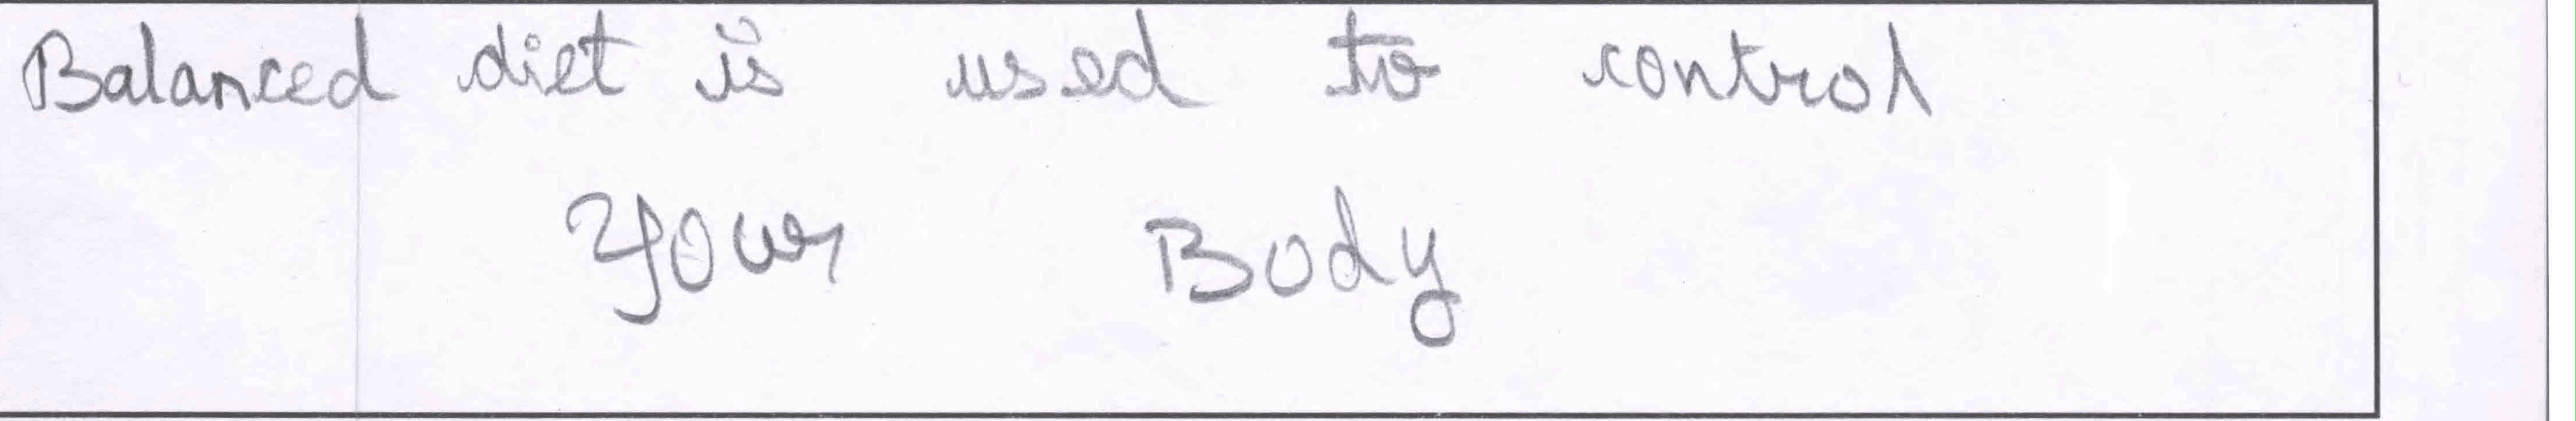 Balanced diet is used to control
Your Body